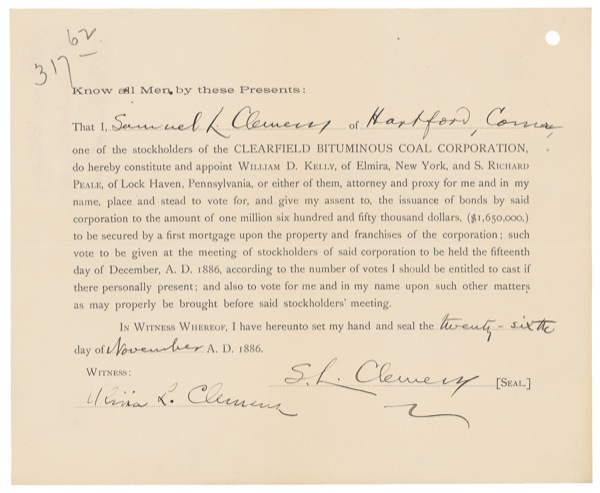 62
317
Know all Men, by these Presents:
That I, Samuel L. Clemens of Hartford, Conn.,
one of the stockholders of the CLEARFIELD BITUMINOUS COAL CORPORATION,
do hereby constitute and appoint WILLIAM D. KELLY, of Elmira, New York, and S. RICHARD
PEALE, of Lock Haven, Pennsylvania, or either of them, attorney and proxy for me and in my
name, place and stead to vote for, and give my assent to, the issuance of bonds by said
corporation to the amount of one million six hundred and fifty thousand dollars, ($1,650,000,)
to be secured by a first mortgage upon the property and franchises of the corporation; such
vote to be given at the meeting of stockholders of said corporation to be held the fifteenth
day of December, A. D. 1886, according to the number of votes I should be entitled to cast if
there personally present; and also to vote for me and in my name upon such other matters
as may properly be brought before said stockholders' meeting.
IN WITNESS WHEREOF, I have hereunto set my hand and seal the twenty-sixth
day of November A. D. 1886.
WITNESS:
S. L. Clemens [SEAL.]
Olivia L. Clemens